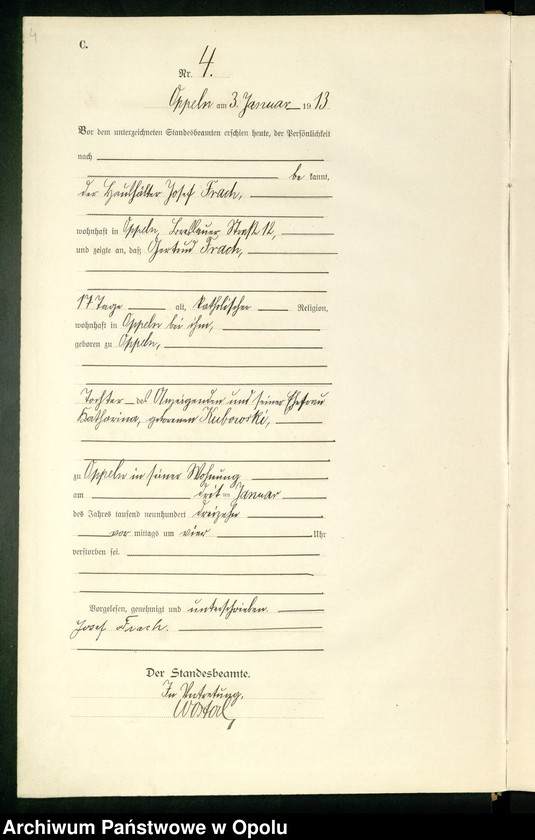 4
C.
Nr. 4.
Oppeln am 3. Januar 1913
Vor dem unterzeichneten Standesbeamten erschien heute, der Persönlichkeit
nach
be kannt,
der Haushälter Josef Frach,
wohnhaft in Oppeln, Breslauer Straße 12,
und zeigte an, daß Gertrud Frach,
17 Tage alt, katholischer Religion,
wohnhaft in Oppeln bei ihm,
geboren zu Oppeln,
Tochter des Anzeigenden und seiner Ehefrau
Katharina, geborenen Kubowski,
zu Oppeln in seiner Wohnung
am drit ten Januar
des Jahres tausend neunhundert dreizehn
vor mittags um vier Uhr
verstorben sei.
Vorgelesen, genehmigt und unterschrieben.
Josef Frach.
Der Standesbeamte.
In Vertretung.
Archiwum Państwowe w Opolu